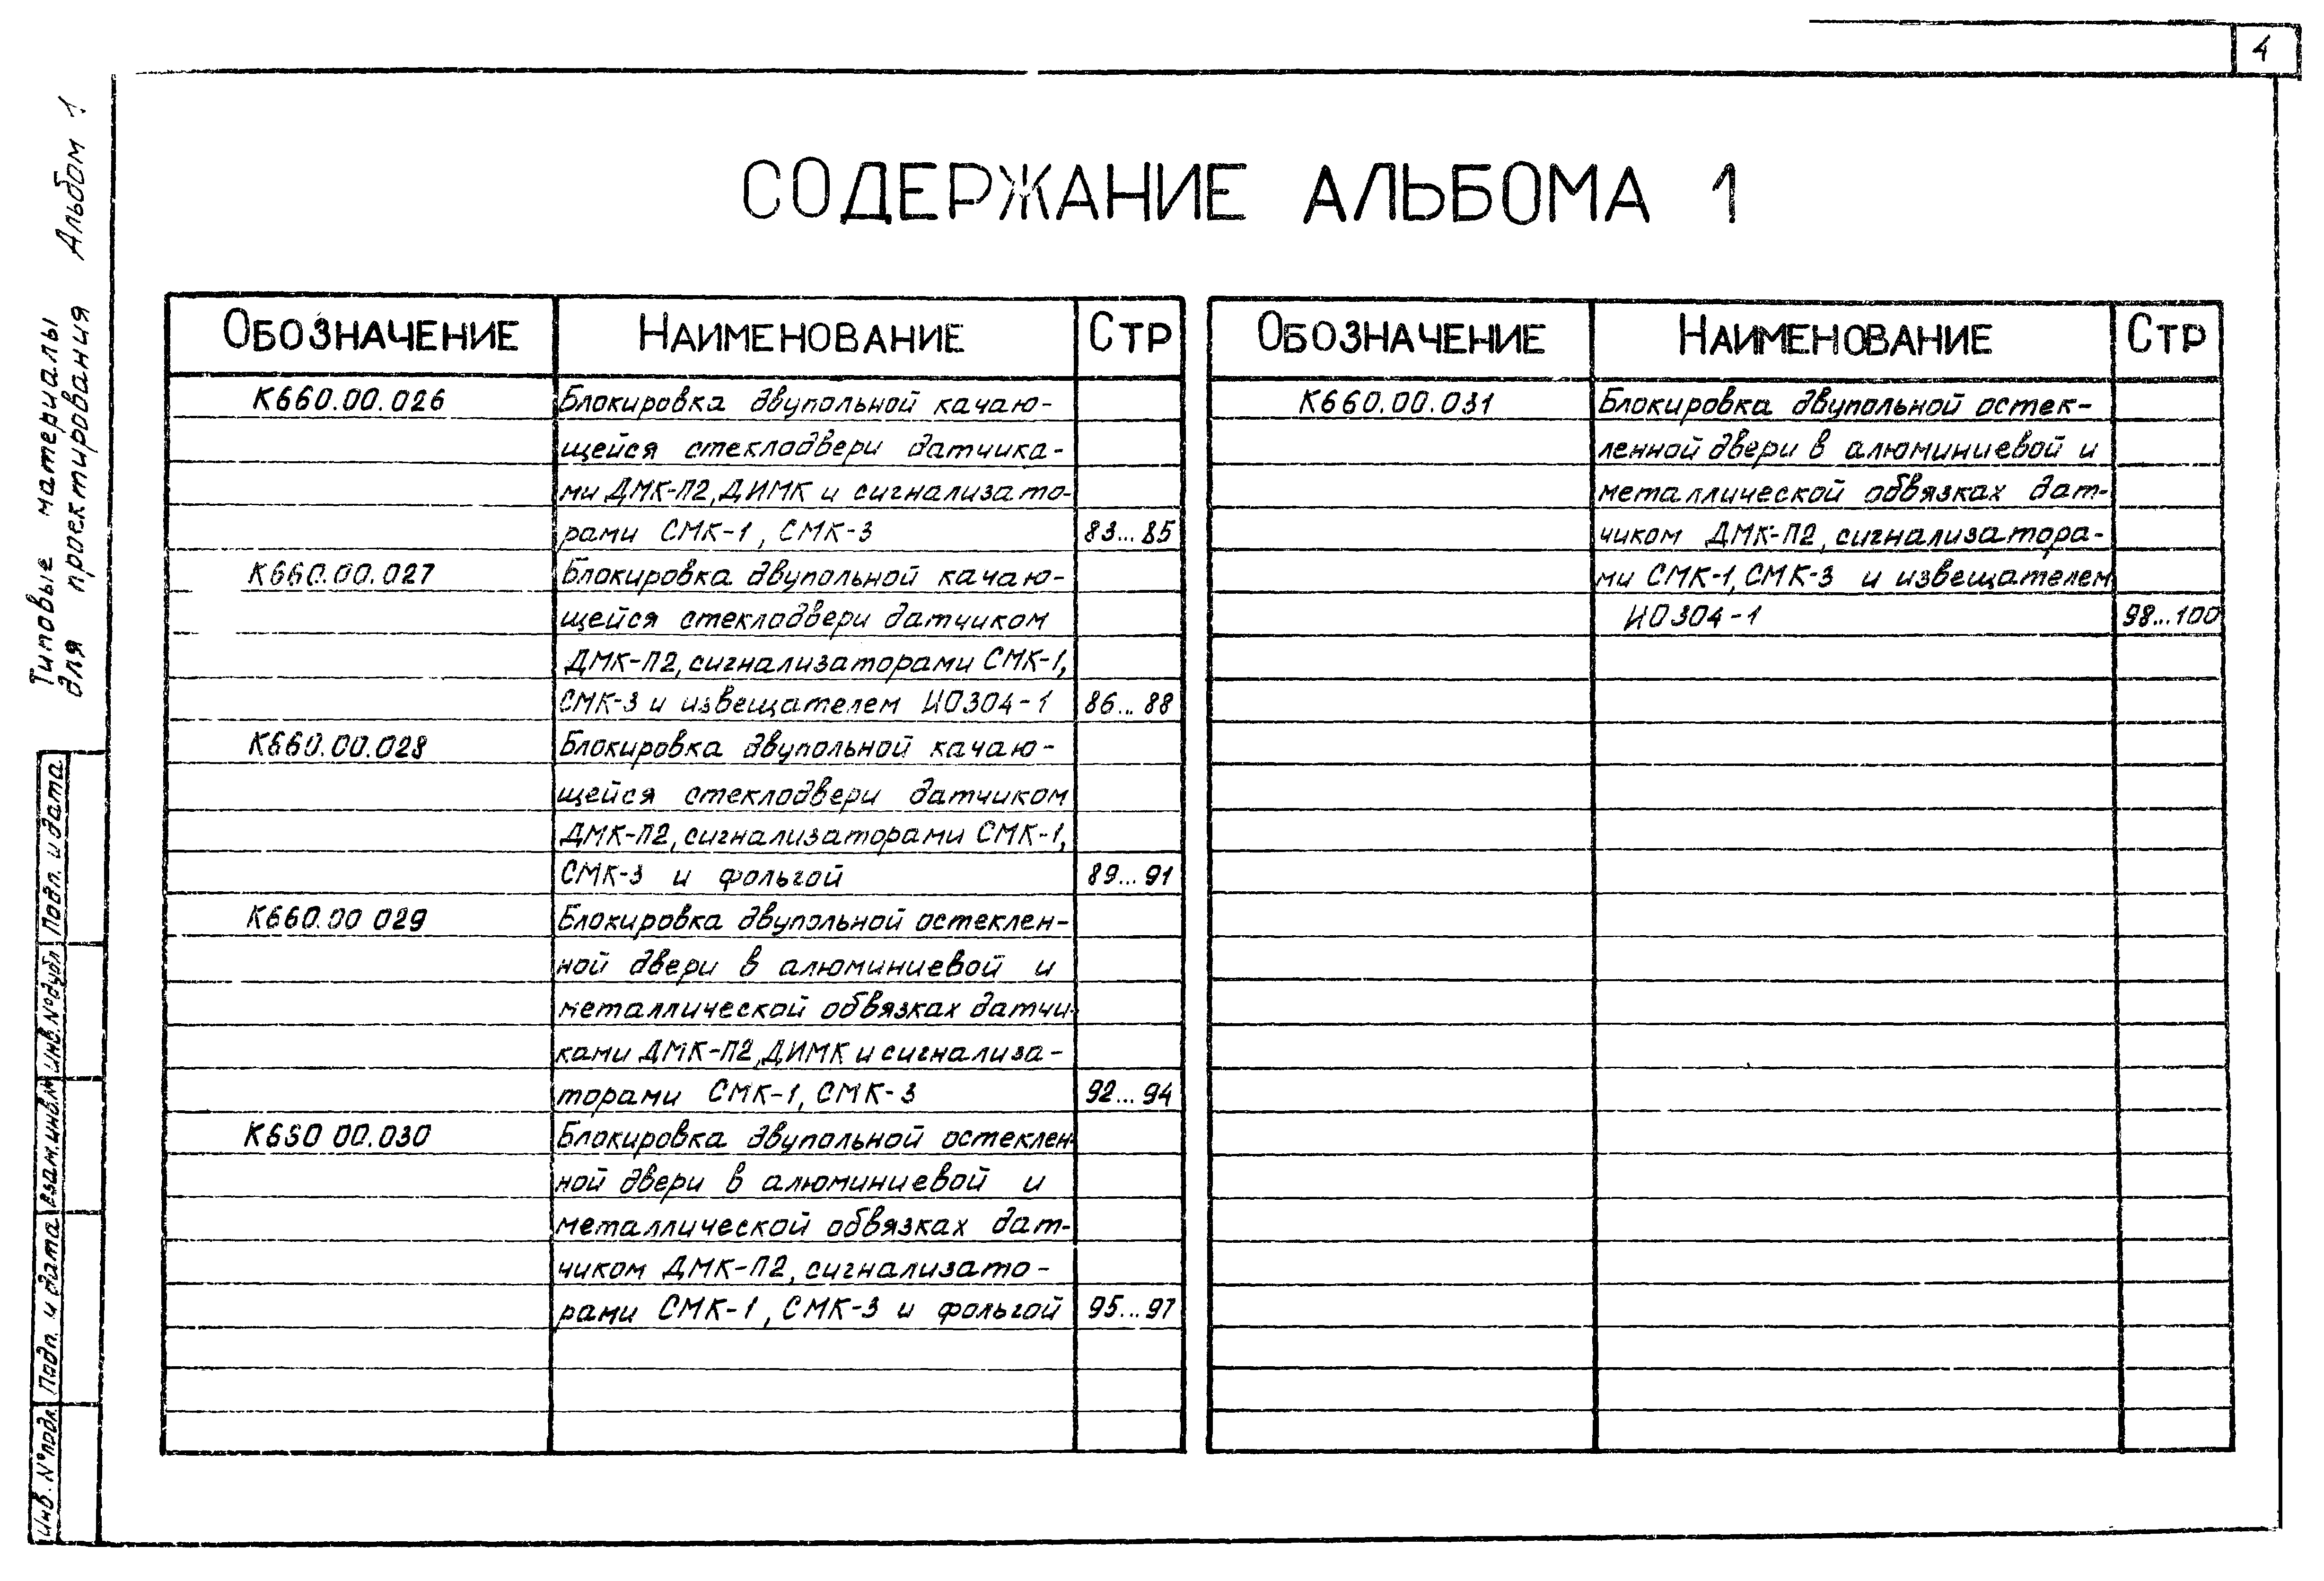 4
Типовые материалы
для проектирования Альбом 1
СОДЕРЖАНИЕ АЛЬБОМА 1
ОБОЗНАЧЕНИЕ НАИМЕНОВАНИЕ СТР
К660.00.026 Блокировка двупольной качаю-
щейся стеклодвери датчика-
ми ДМК-П2, ДИМК и сигнализато-
рами СМК-1, СМК-3 83...85
К660.00.027 Блокировка двупольной качаю-
щейся стеклодвери датчиком
ДМК-П2, сигнализаторами СМК-1,
СМК-3 и извещателем ИО304-1 86...88
К660.00.028 Блокировка двупольной качаю-
щейся стеклодвери датчиком
ДМК-П2, сигнализаторами СМК-1,
СМК-3 и фольгой 89...91
К660.00 029 Блокировка двупольной остеклен-
ной двери в алюминиевой и
металлической обвязках датчи-
ками ДМК-П2, ДИМК и сигнализа-
торами СМК-1, СМК-3 92...94
К660 00.030 Блокировка двупольной остеклен-
ной двери в алюминиевой и
металлической обвязках дат-
чиком ДМК-П2, сигнализато-
рами СМК-1, СМК-3 и фольгой 95...97
ОБОЗНАЧЕНИЕ НАИМЕНОВАНИЕ СТР
К660.00.031 Блокировка двупольной остек-
ленной двери в алюминиевой и
металлической обвязках дат-
чиком ДМК-П2, сигнализатора-
ми СМК-1, СМК-3 и извещателем
ИО304-1 98...100
Подп. и дата
Инв. № дубл
Взам. инв. №
Подп. и дата
Инв. № подл.